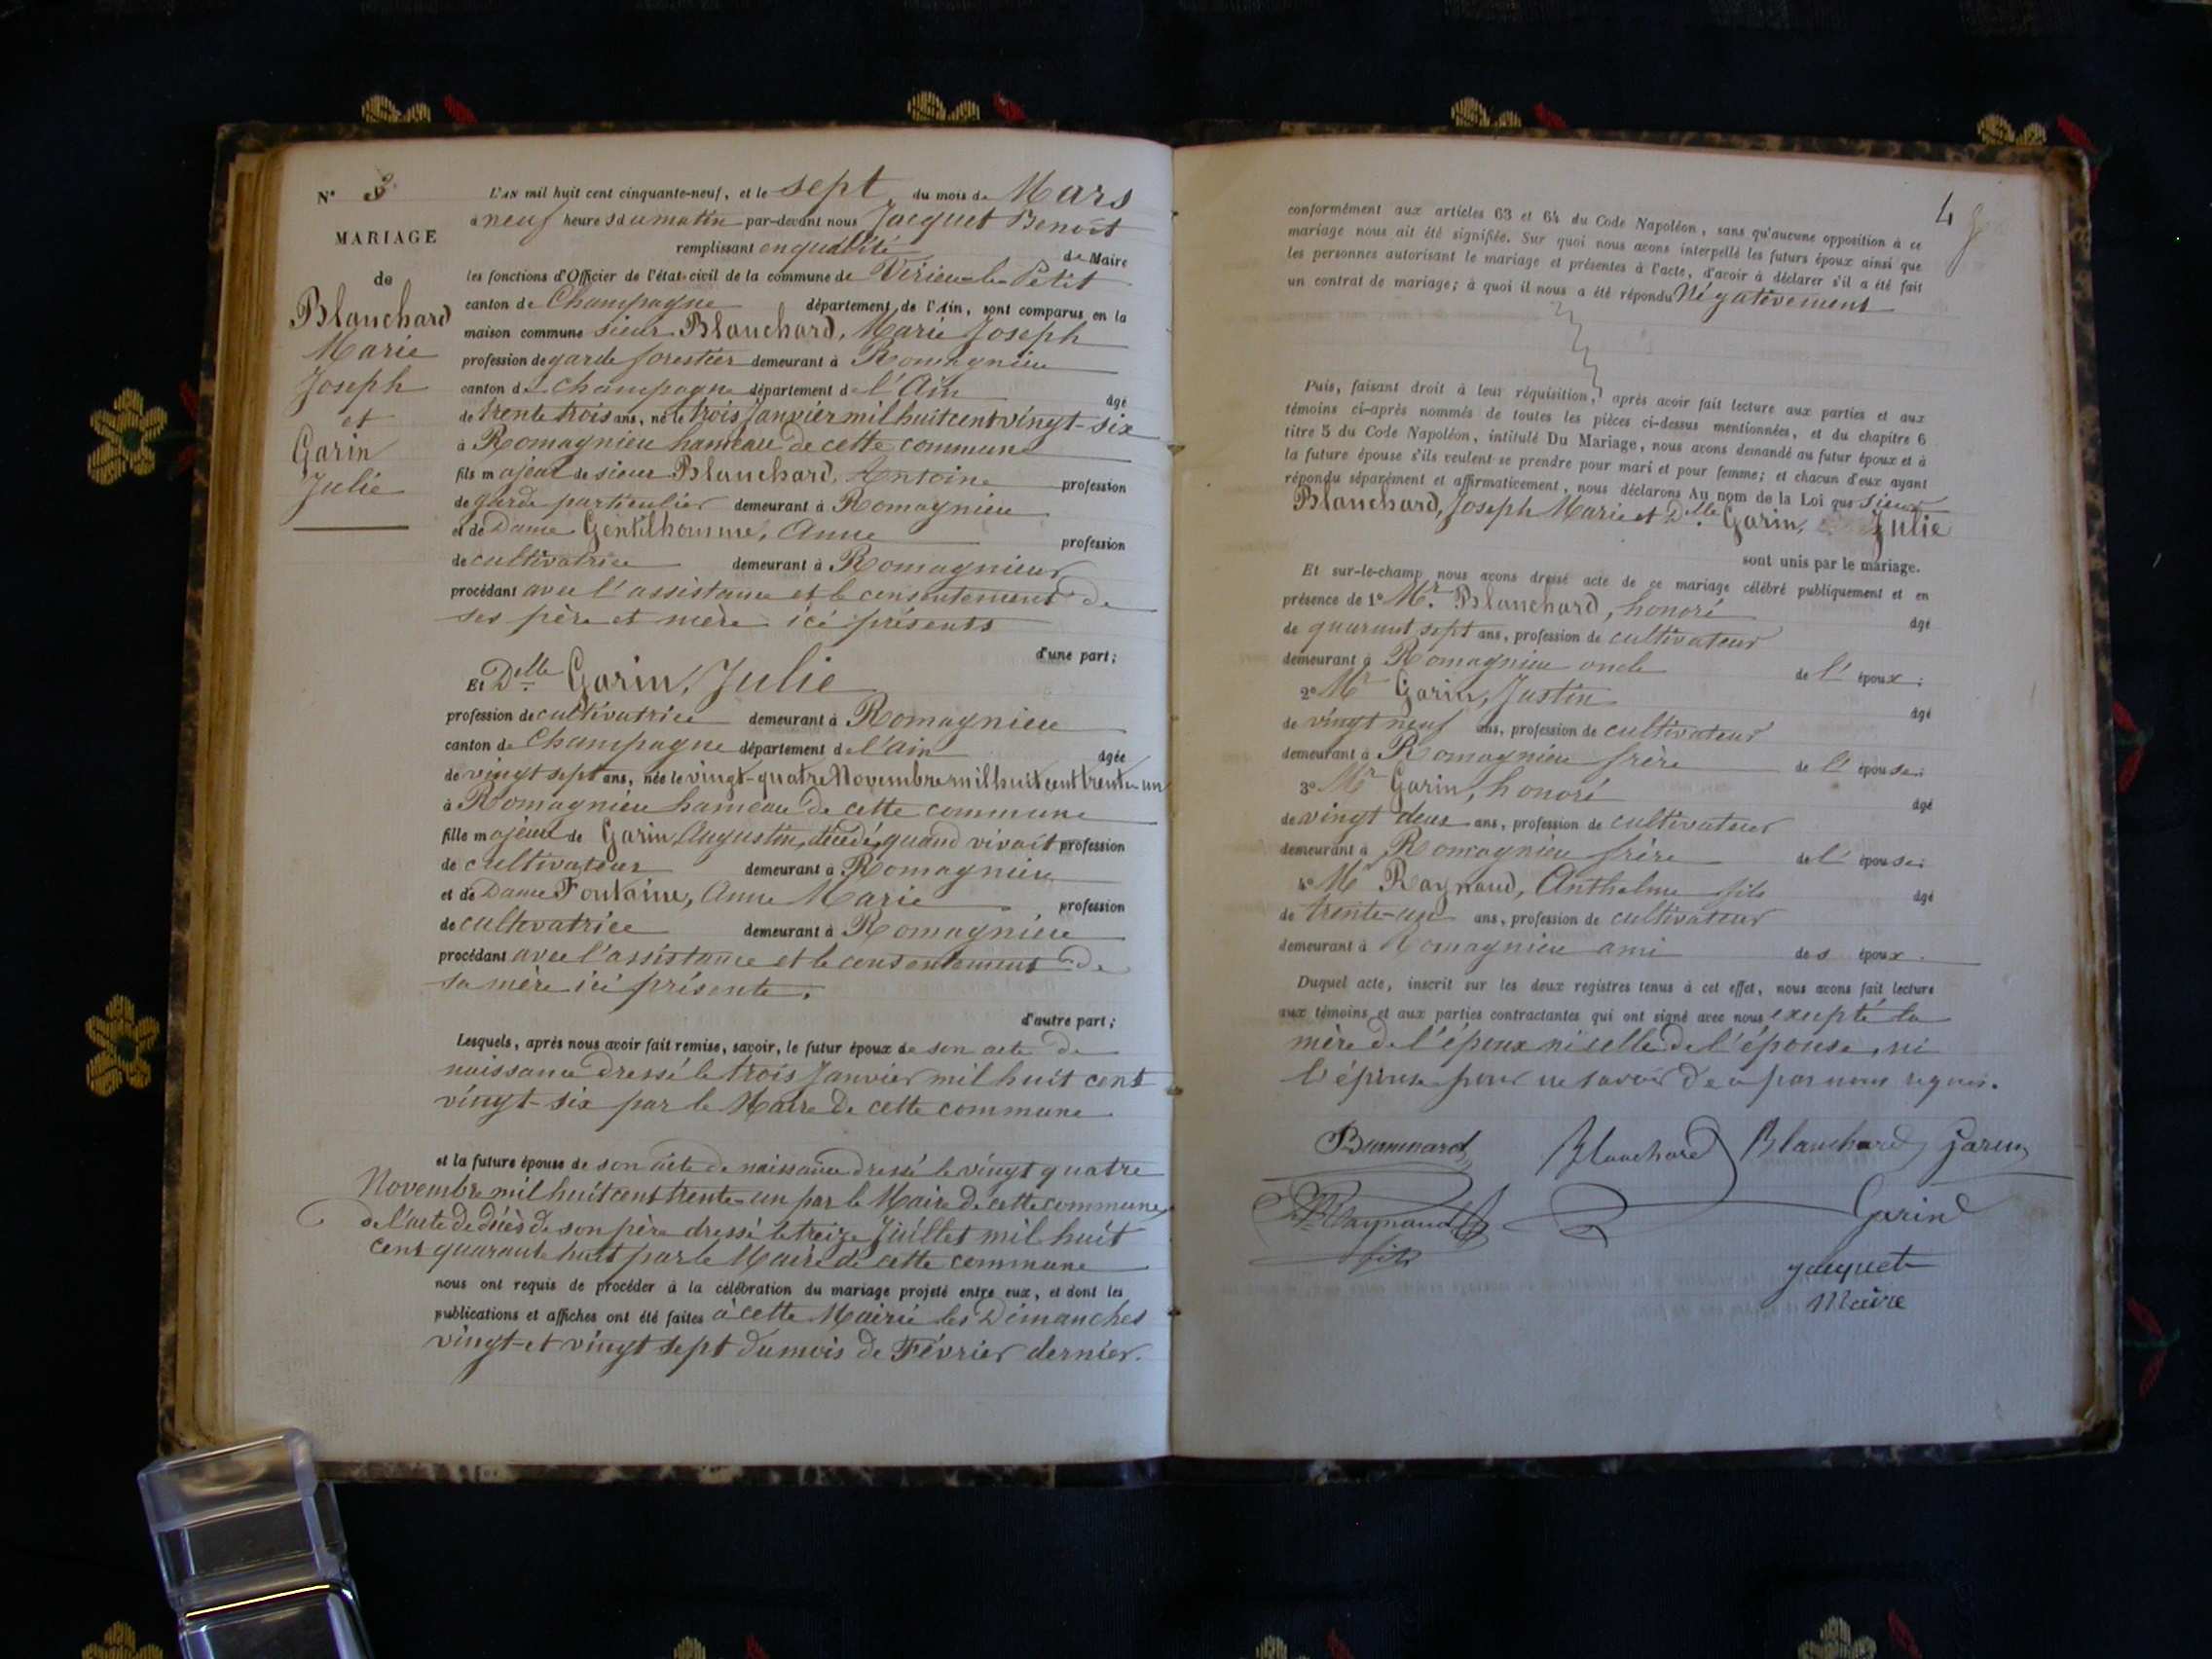 N° 3
MARIAGE
de
Blanchard
Marie
Joseph
et
Garin
Julie
L'AN mil huit cent cinquante-neuf, et le sept du mois de Mars
à neuf heures du matin par-devant nous Jacquet Benoît
remplissant en qualité de Maire
les fonctions d'Officier de l'état-civil de la commune de Virieu-le-Petit
canton de Champagne département de l'Ain, sont comparus en la
maison commune sieur Blanchard, Marie Joseph
profession de garde forestier demeurant à Romagnieu
canton de Champagne département de l'Ain âgé
de trente trois ans, né le trois Janvier mil huit cent vingt-six
à Romagnieu hameau de cette commune
fils majeur de sieur Blanchard, Antoine profession
de garde particulier demeurant à Romagnieu
et de Dame Gentilhomme, Anne profession
de cultivatrice demeurant à Romagnieu
procédant avec l'assistance et le consentement de
ses père et mère ici présents
d'une part;
Et Dlle Garin, Julie
profession de cultivatrice demeurant à Romagnieu
canton de Champagne département de l'ain âgée
de vingt sept ans, née le vingt-quatre Novembre mil huit cent trente-un
à Romagnieu hameau de cette commune
fille majeure de Garin, Augustin, décédé, quand vivait profession
de cultivateur demeurant à Romagnieu
et de Dame Fontaine, Anne Marie profession
de cultivatrice demeurant à Romagnieu
procédant avec l'assistance et le consentement de
sa mère ici présente.
d'autre part;
Lesquels, après nous avoir fait remise, savoir, le futur époux de son acte de
naissance dressé le trois Janvier mil huit cent
vingt-six par le Maire de cette commune
et la future épouse de son acte de naissance dressé le vingt quatre
Novembre mil huit cent trente-un par le Maire de cette commune,
de l'acte de décès de son père dressé le treize Juillet mil huit
cent quarante huit par le Maire de cette commune
nous ont requis de procéder à la célébration du mariage projeté entre eux, et dont les
publications et affiches ont été faites à cette Mairie les Dimanches
vingt-et vingt sept du mois de Février dernier.
4
conformément aux articles 63 et 64 du Code Napoléon, sans qu'aucune opposition à ce
mariage nous ait été signifiée. Sur quoi nous avons interpellé les futurs époux ainsi que
les personnes autorisant le mariage et présentes à l'acte, d'avoir à déclarer s'il a été fait
un contrat de mariage; à quoi il nous a été répondu Négativement
Puis, faisant droit à leur réquisition, après avoir fait lecture aux parties et aux
témoins ci-après nommés de toutes les pièces ci-dessus mentionnées, et du chapitre 6
titre 5 du Code Napoléon, intitulé Du Mariage, nous avons demandé au futur époux et à
la future épouse s'ils veulent se prendre pour mari et pour femme; et chacun d'eux ayant
répondu séparément et affirmativement, nous déclarons Au nom de la Loi que sieur
Blanchard, Joseph Marie et Dlle Garin, Julie
sont unis par le mariage.
Et sur-le-champ nous avons dressé acte de ce mariage célébré publiquement et en
présence de 1° Mr. Blanchard, honoré âgé
de quarant sept ans, profession de cultivateur
demeurant à Romagnieu oncle de l'époux;
2° Mr Garin, Justin âgé
de vingt neuf ans, profession de cultivateur
demeurant à Romagnieu frère de l'épouse;
3° Mr Garin, honoré âgé
de vingt deux ans, profession de cultivateur
demeurant à Romagnieu frère de l'épouse;
4° Mr Raynaud, Anthelme fils âgé
de trente-un ans, profession de cultivateur
demeurant à Romagnieu ami des époux.
Duquel acte, inscrit sur les deux registres tenus à cet effet, nous avons fait lecture
aux témoins et aux parties contractantes qui ont signé avec nous excepté la
mère de l'époux ni celle de l'épouse, ni
l'épouse pour ne savoir de ce par nous requis.
Blanchard Blanchard Garin
Raynaud Garin
fils
Jacquet
Maire